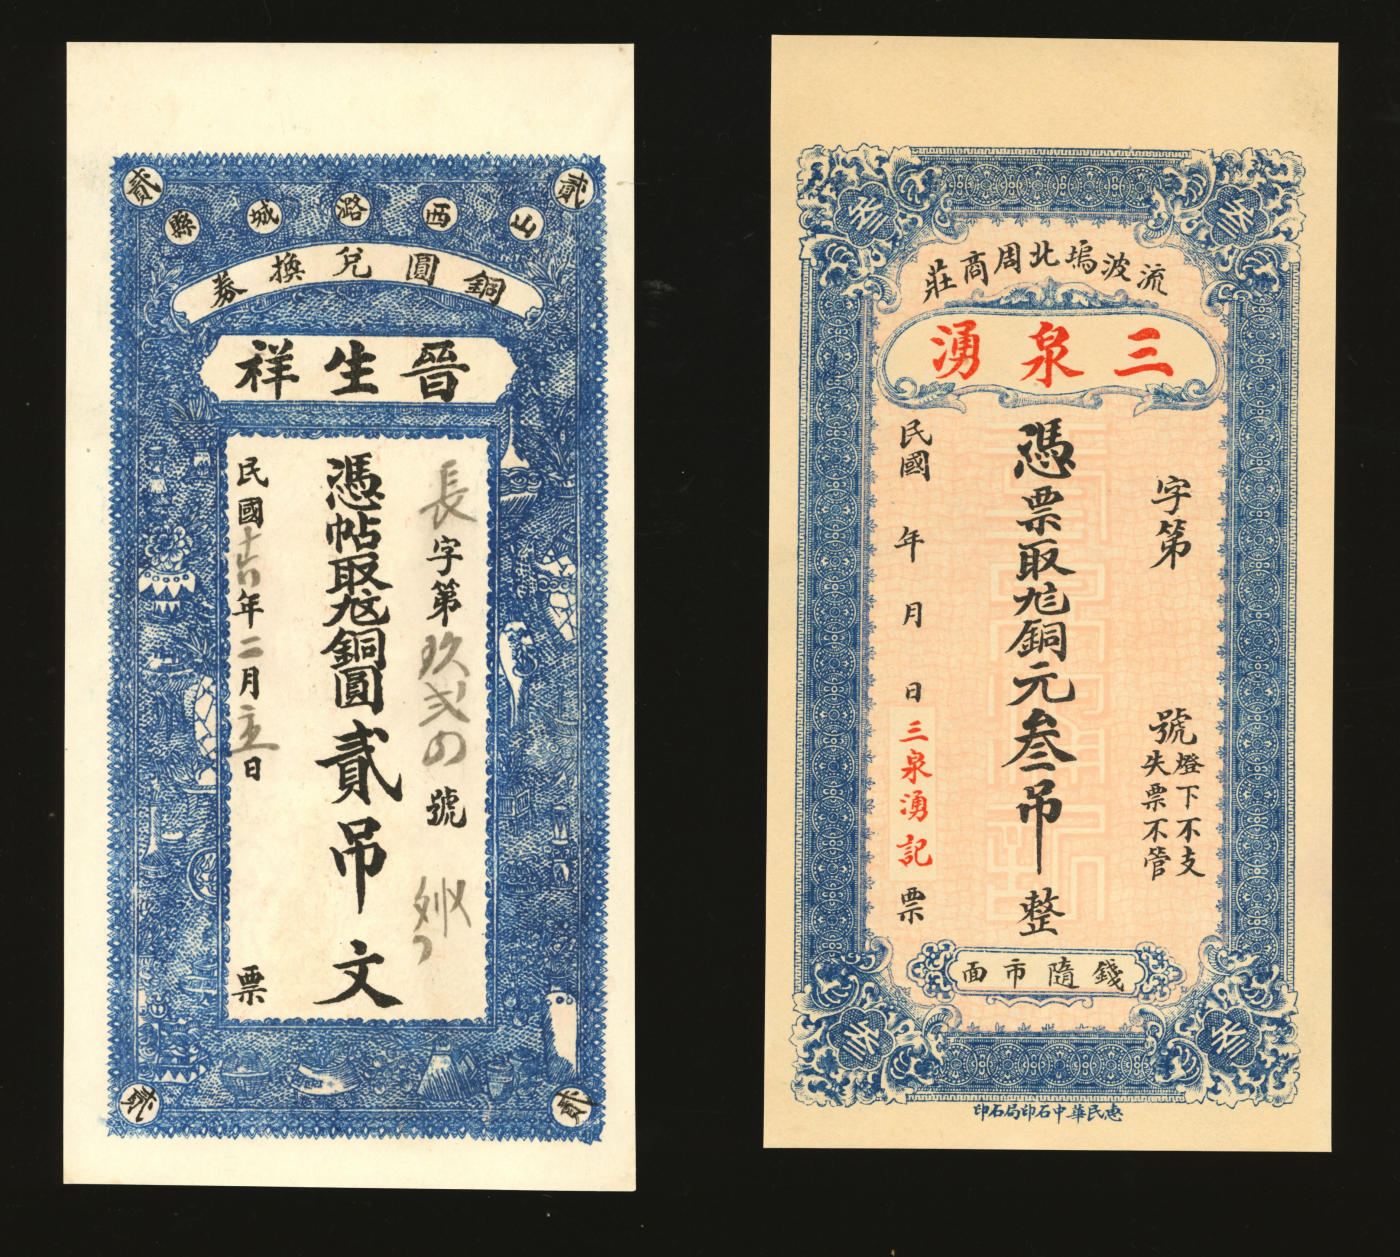 貳
貳
山西潞城縣
銅圓兌換券
晉生祥
長字第玖弍四號
憑帖取兌銅圓貳吊文
民國十六年二月立日
票
貳
貳
叁
叁
流波塢北周商莊
三泉湧
字第號
燈下不支
失票不管
憑票取兌銅元叁吊整
民國年月日三泉湧記票
錢隨市面
叁
叁
惠民華中石印局石印